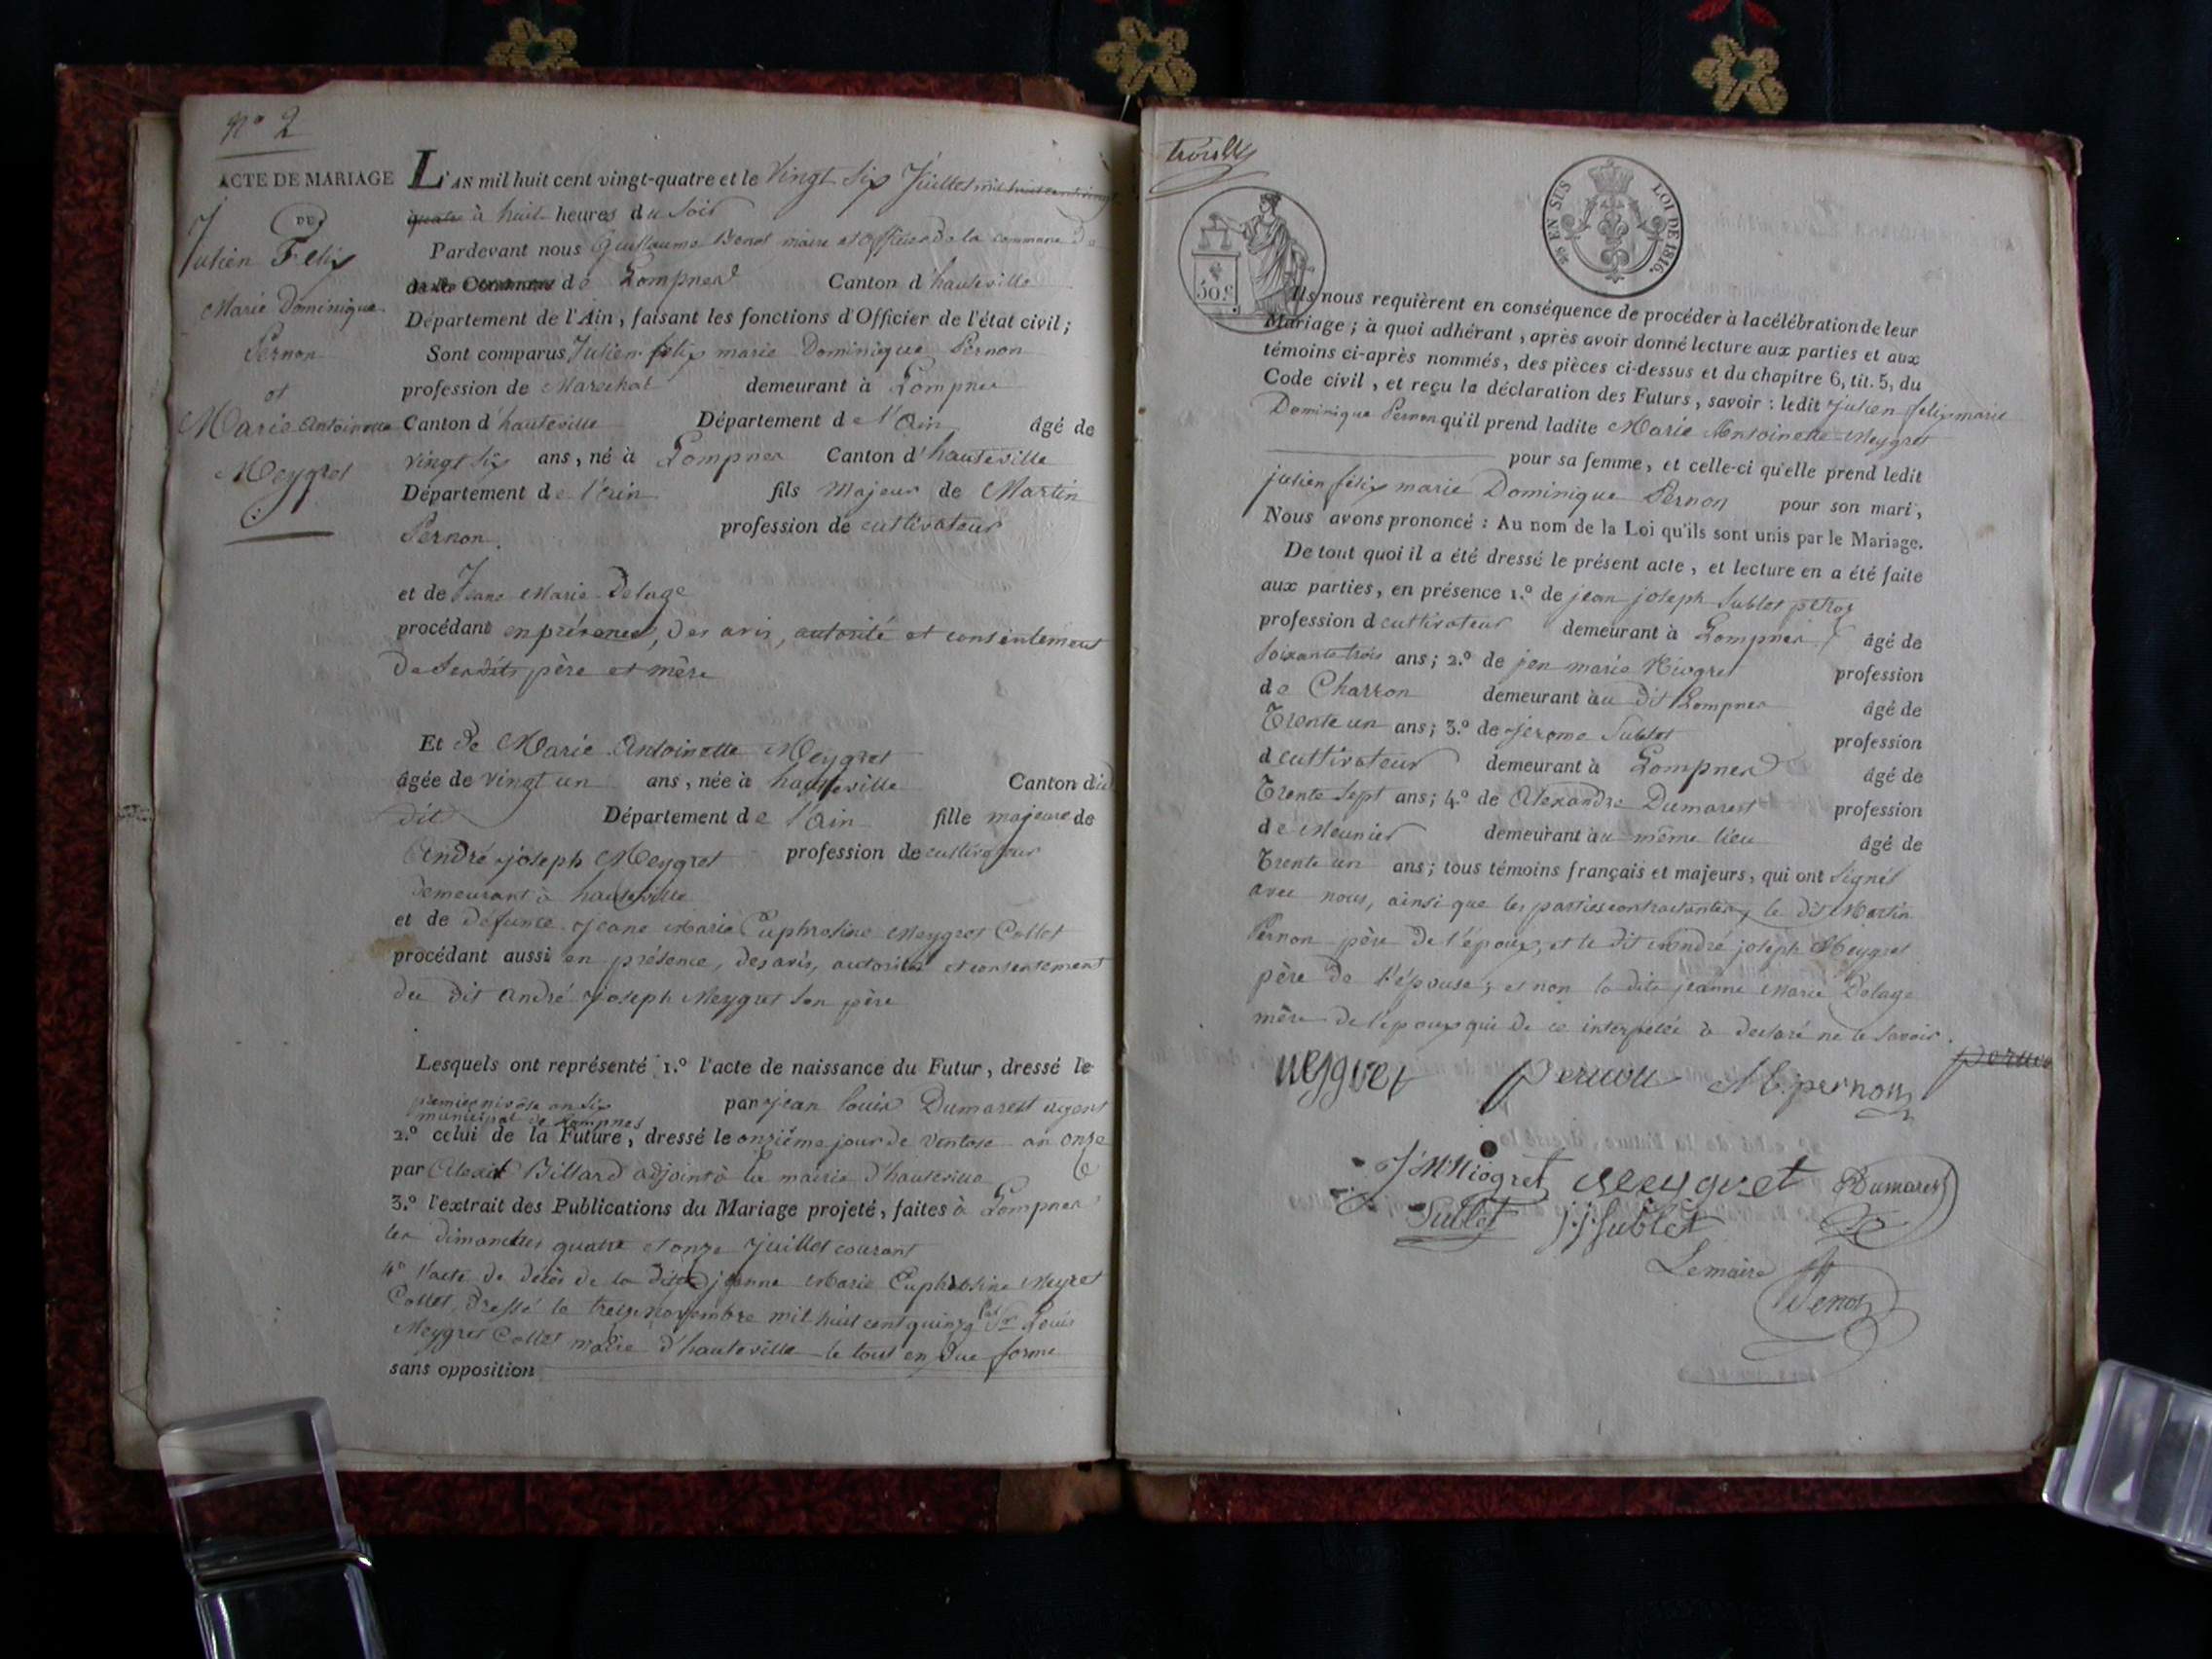 N° 2
ACTE DE MARIAGE
DU
Julien Felix
Marie Dominique
Pernon
et
Marie Antoinette
Meygret
L'AN mil huit cent vingt-quatre et le vingt six Juillet mil huit cent vingt
quatre à huit heures du soir
Pardevant nous Guillaume Benot maire et officier de la commune de
de la Commune de Lompnes Canton d'hauteville
Département de l'Ain, faisant les fonctions d'Officier de l'état civil;
Sont comparus Julien felix marie Dominique Pernon
profession de Marechal demeurant à Lompnes
Canton d'hauteville Département de l'Ain âgé de
vingt six ans, né à Lompnes Canton d'hauteville
Département de l'ain fils majeur de Martin
Pernon profession de cultivateur
et de Jeane Marie Delage
procédant en présence, des avis, autorité et consentement
de ses dits père et mère
Et de Marie Antoinette Meygret
âgée de vingt un ans, née à hauteville Canton du
dit Département de l'Ain fille majeure de
André joseph Meygret profession de cultivateur
demeurant à hauteville
et de défunte Jeane Marie Euphrosine Meygret Collet
procédant aussi en présence, des avis, autorité et consentement
du dit André Joseph Meygret son père
Lesquels ont représenté 1.° l'acte de naissance du Futur, dressé le
premier nivôse an six par jean louis Dumarest agent
municipal de Lompnes
2.° celui de la Future, dressé le onzième jour de ventose an onze
par Alexis Billard adjoint à la mairie d'hauteville
3.° l'extrait des Publications du Mariage projeté, faites à Lompnes
les dimanches quatre et onze juillet courant
4° l'acte de décès de la dite jeanne Marie Euphrosine Meyret
Collet, dressé le treize novembre mil huit cent quinze par Sr Louis
Meygret Collet maire d'hauteville le tout en due forme
sans opposition
50 c.
EN SUS LOI DE 1816.
Ils nous requièrent en conséquence de procéder à la célébration de leur
Mariage; à quoi adhérant, après avoir donné lecture aux parties et aux
témoins ci-après nommés, des pièces ci-dessus et du chapitre 6, tit. 5, du
Code civil, et reçu la déclaration des Futurs, savoir: ledit Julien felix marie
Dominique Pernon qu'il prend ladite Marie Antoinette Meygret
pour sa femme, et celle-ci qu'elle prend ledit
julien félix marie Dominique Pernon pour son mari,
Nous avons prononcé: Au nom de la Loi qu'ils sont unis par le Mariage.
De tout quoi il a été dressé le présent acte, et lecture en a été faite
aux parties, en présence 1.° de jean joseph Sublet
profession d cultivateur demeurant à Lompnes âgé de
soixante trois ans; 2.° de jen marie Niogret profession
de Charron demeurant au dit Lompnes âgé de
Trente un ans; 3.° de Jerome Sublet profession
d cultivateur demeurant à Lompnes âgé de
Trente sept ans; 4.° de Alexandre Dumarest profession
de Meunier demeurant au même lieu âgé de
Trente un ans; tous témoins français et majeurs, qui ont signés
avec nous, ainsi que les parties contractantes, le dit Martin
Pernon père de l'époux, et le dit andré joseph Meygret
père de l'épouse; et non la dite jeanne Marie Delage
mère de l'epoux qui de ce interpelée a declaré ne le savoir.
meygret pernon M. pernon
J M Niogret Meygret Dumarest
Sublet j j Sublet
Lemaire
Benot